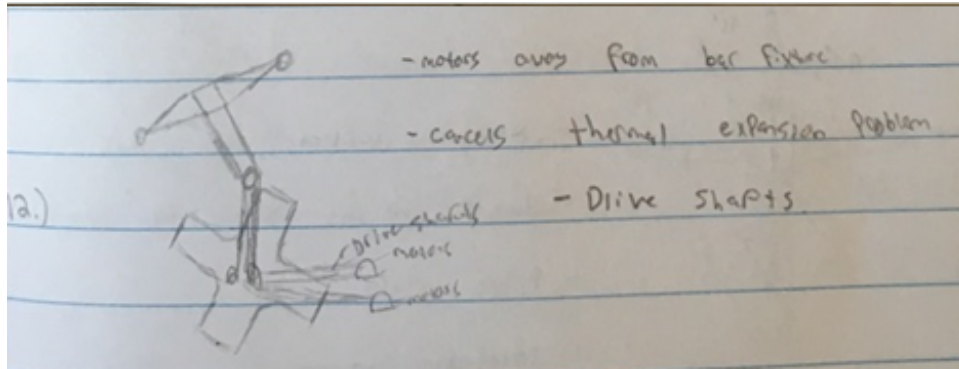 - motors away from bar fixture
- cancels thermal expansion problem
12.)
- Drive shafts
Drive shafts
motors
motors